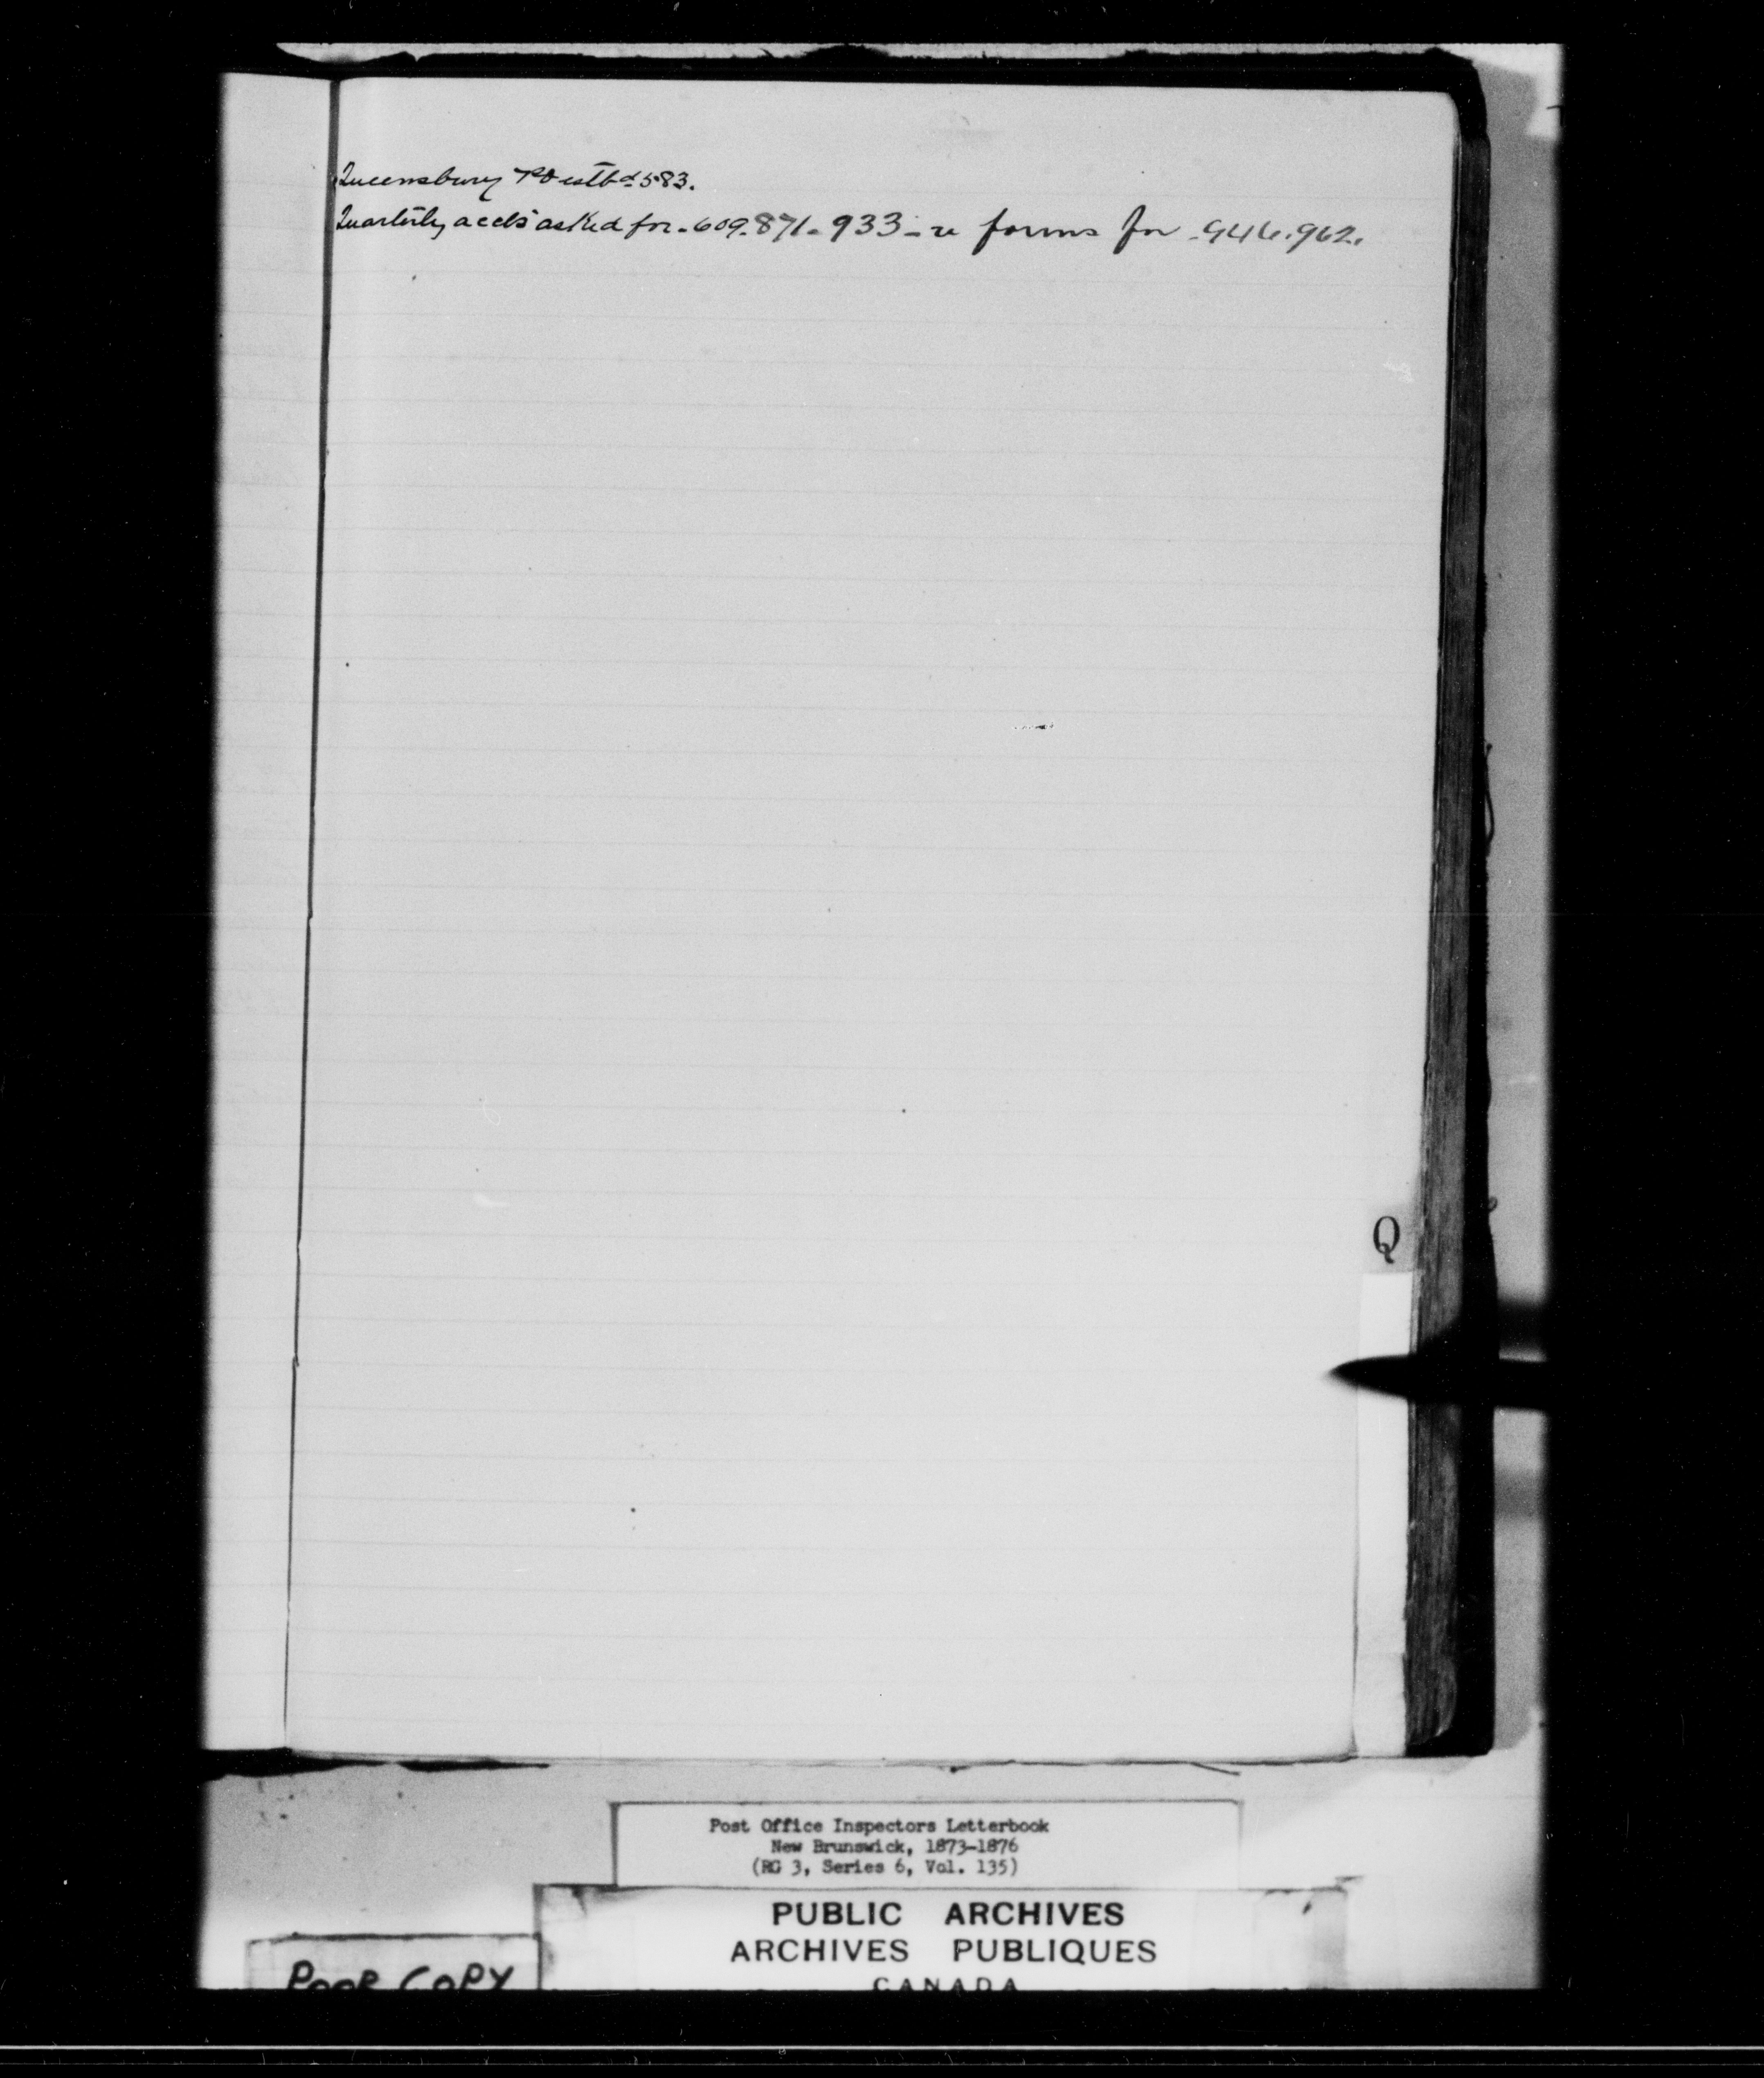 Queensbury PO estbd 583.
Quarterly accts asked for. 609. 871. 933 - re forms for. 946. 962.
Q
Post Office Inspectors Letterbook
New Brunswick, 1873-1876
(RG 3, Series 6, Vol. 135)
PUBLIC ARCHIVES
ARCHIVES PUBLIQUES
CANADA
POOR COPY